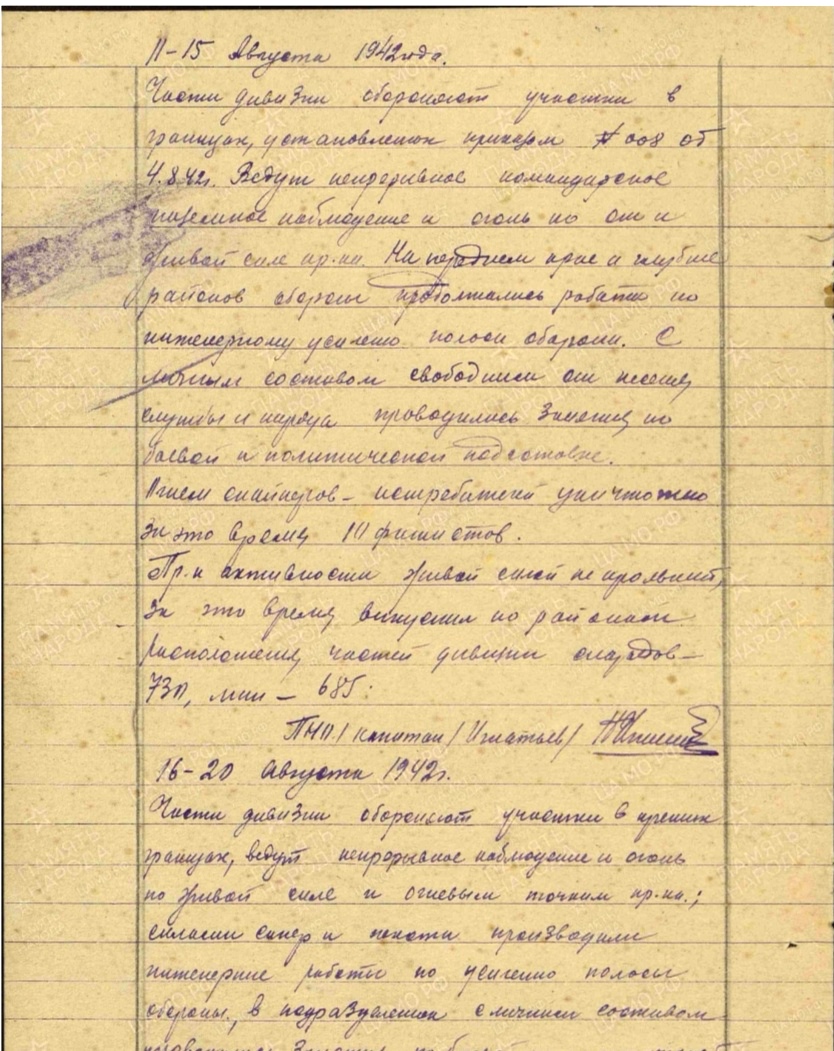 11-15 Августа 1942 года.
Части дивизии обороняют участки в
границах, установленых приказом № 008 от
4.8.42г. Ведут непрерывное командирское
наземное наблюдение и огонь по от и
живой силе пр-ка. На переднем крае и глубине
районов обороны продолжались работы по
инженерному усилению полосы обороны. С
личным составом свободным от несения
службы и наряда проводились занятия по
боевой и политической подготовке.
Огнем снайперов - истребителей уничтожено
за это время 10 фашистов.
Пр-к активности живой силой не проявил,
за это время выпустил по районам
расположения частей дивизии снарядов -
730, мин - 685.
ПНО1 капитан /Игнатьев/
16-20 Августа 1942г.
Части дивизии обороняют участки в прежних
границах, ведут непрерывное наблюдение и огонь
по живой силе и огневым точкам пр-ка.;
силами сапер и пехоты производили
инженерные работы по усилению полосы
обороны., в подразделениях с личным составом